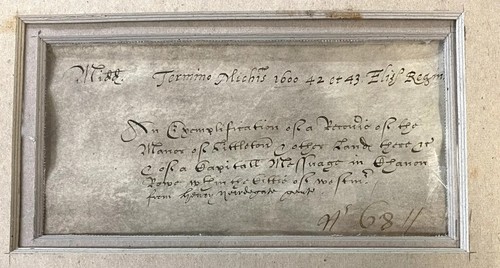 Midd. Termino Michis 1600 42 et 43 Eliz. Regin
An Exemplification of a Recovie of the
Manor of Littleton & other Lands there &c
& of a Capitall Messuage in Chanon
Rowe wthin the Cittie of westmr
from Henry Newdegate gent
No 68